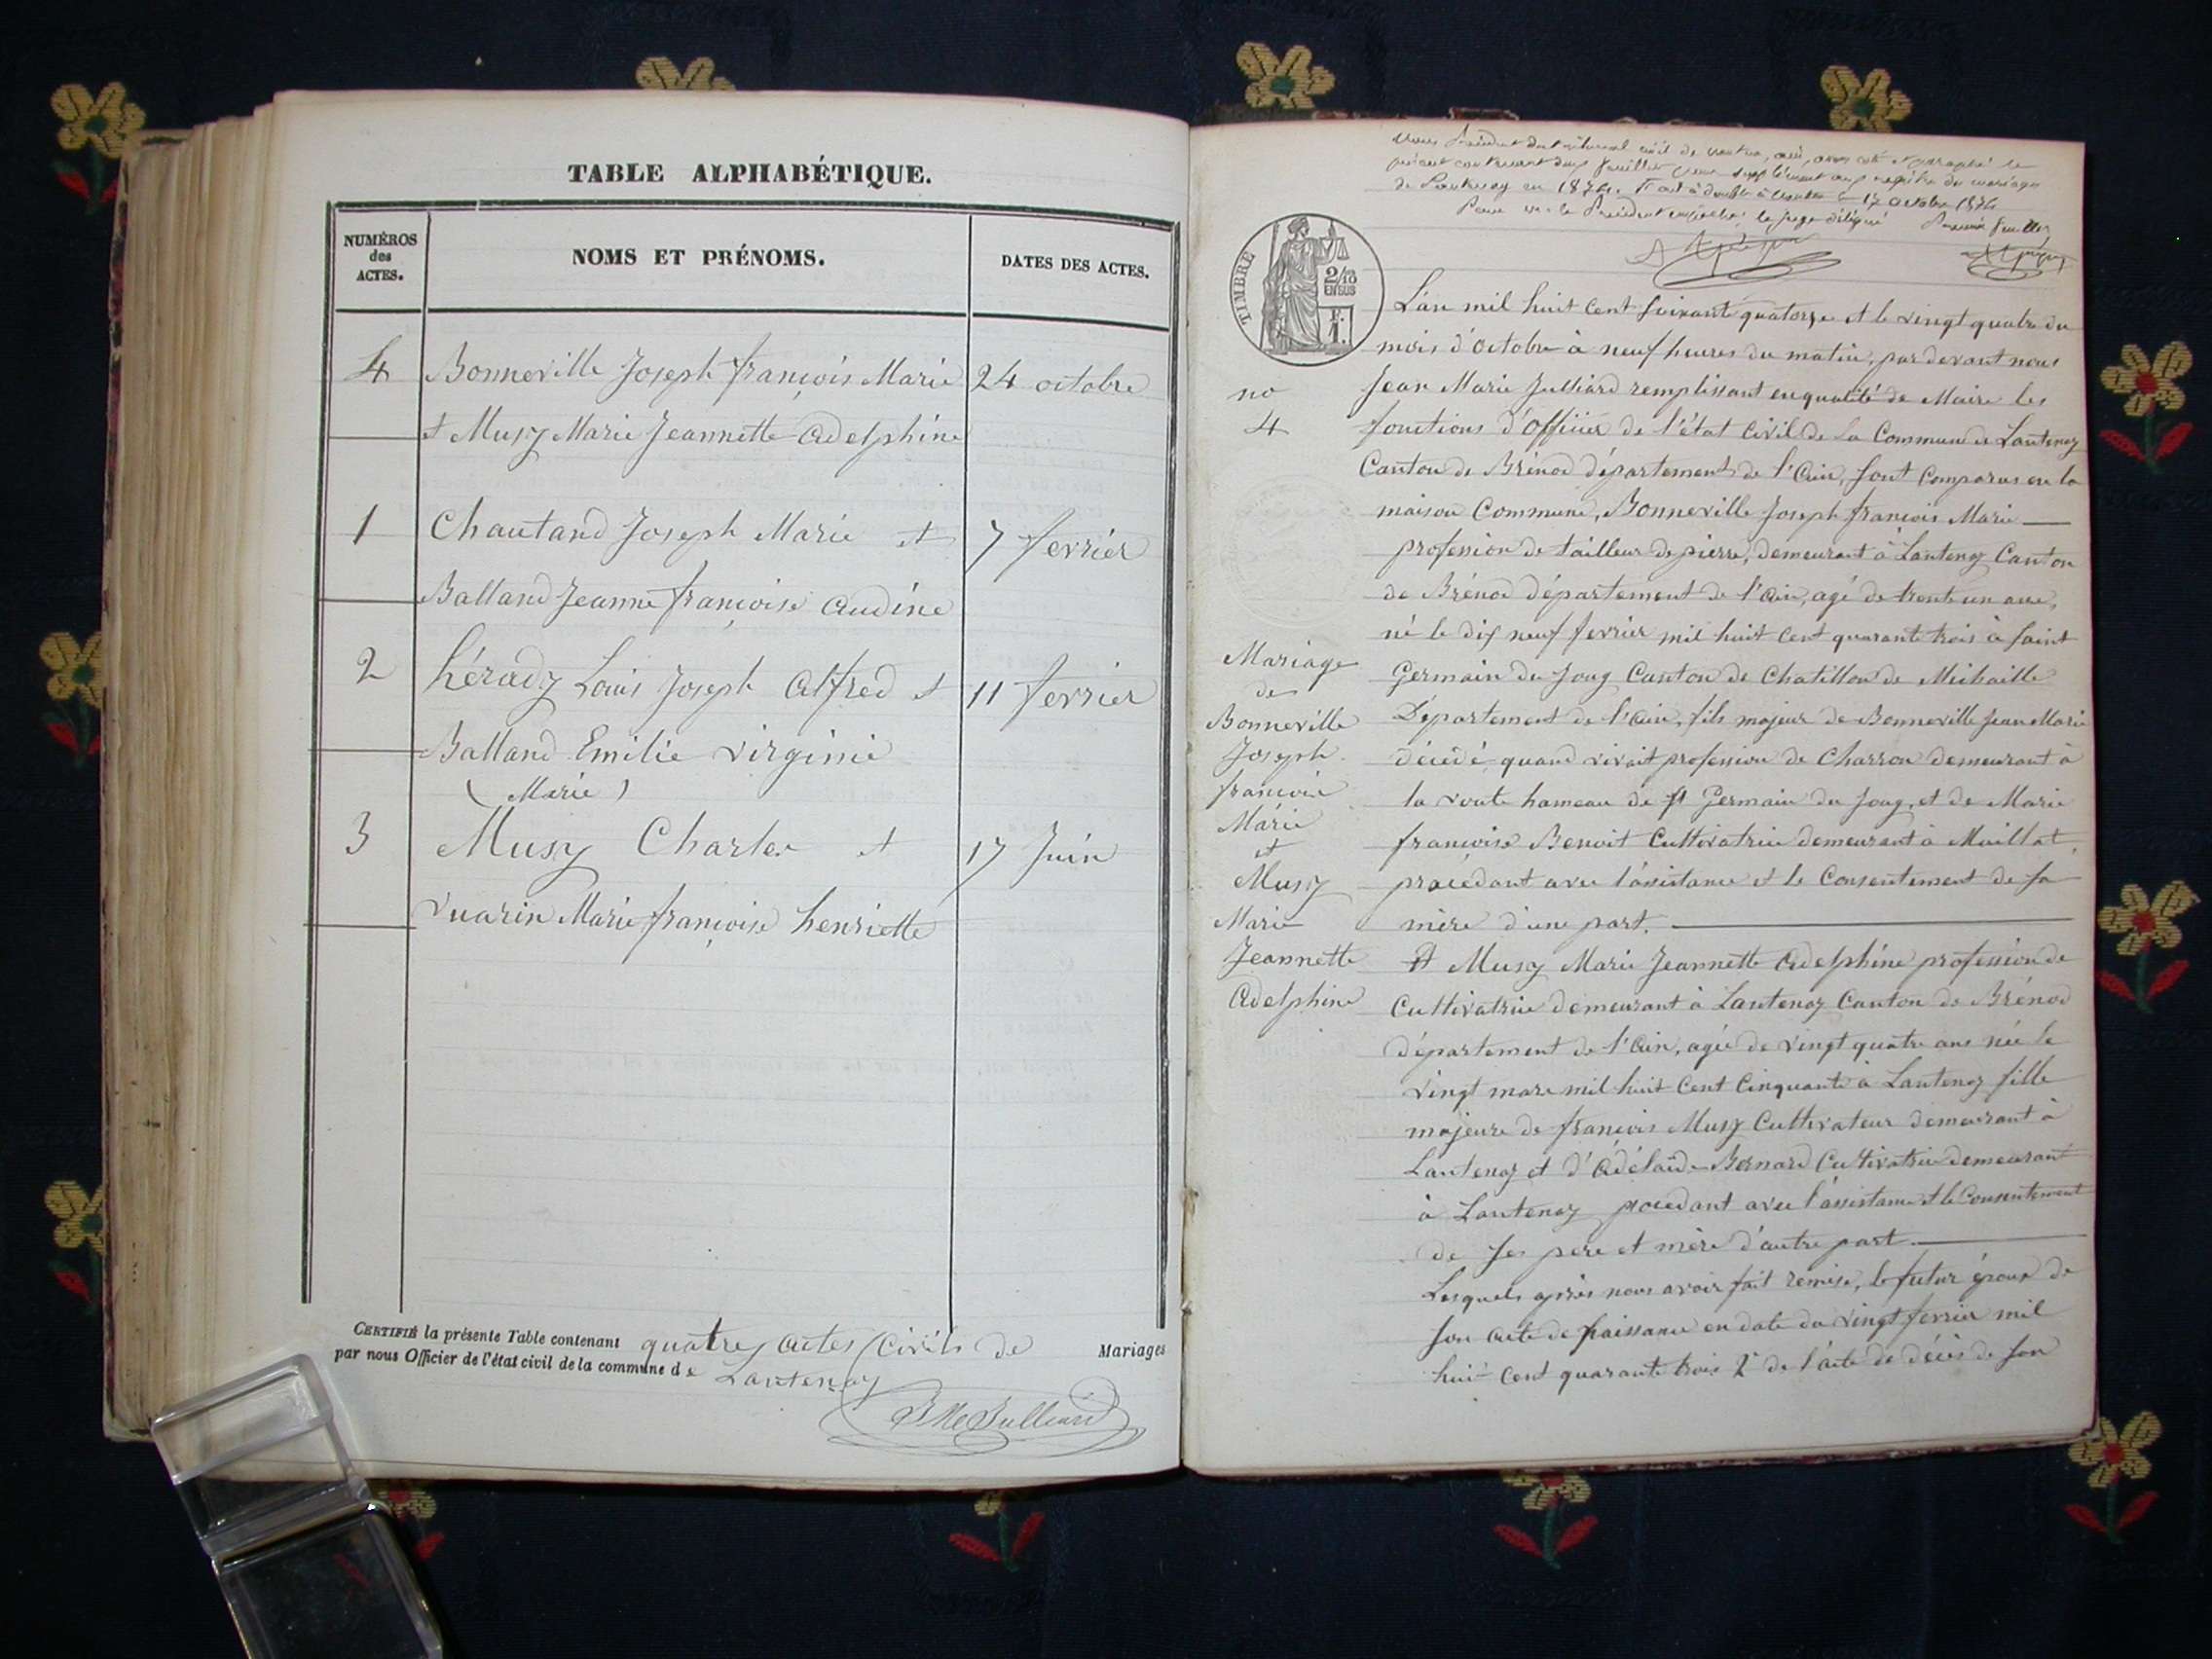 TABLE ALPHABÉTIQUE.
NUMÉROS des ACTES.
NOMS ET PRÉNOMS.
DATES DES ACTES.
4 Bonneville Joseph françois Marie 24 octobre
et Musy Marie Jeannette Adelphine
1 Chautand Joseph Marie et 7 fevrier
Balland Jeanne françoise Andine
2 hérady Louis Joseph Alfred et 11 fevrier
Balland Emilie virginie
(Marie)
3 Musy Charles et 17 Juin
vuarin Marie françoise henriette
CERTIFIÉ la présente Table contenant quatre actes civils de Mariages
par nous Officier de l'état civil de la commune de Lantenay
JM Julliard
Nous Président du tribunal civil de Nantua, ain, avons coté et paraphé le
présent contenant deux feuillets pour supplément aux registre de mariages
de Lantenay en 1874. Fait à double à Nantua le 17 octobre 1874
Pour M. le Président empêché, le juge délégué Premier feuillet
TIMBRE
2/10
EN SUS
F.
1.
L'an mil huit cent soixante quatorze et le vingt quatre du
mois d'octobre à neuf heures du matin, par devant nous
Jean Marie Julliard remplissant en qualité de Maire les
fonctions d'officier de l'état civil de la Commune de Lantenay
Canton de Brénod département de l'Ain, sont comparus en la
maison Commune, Bonneville Joseph françois Marie
profession de tailleur de pierre, demeurant à Lantenay Canton
de Brénod département de l'Ain, agé de trente un ans,
né le dix neuf fevrier mil huit cent quarante trois à Saint
Germain de Joug Canton de Chatillon de Michaille
Département de l'Ain, fils majeur de Bonneville Jean Marie
décédé quand vivait profession de Charron demeurant à
la voute hameau de St Germain du Joug, et de Marie
françoise Benoit Cultivatrice demeurant à Maillat,
procédant avec l'assistance et le Consentement de sa
mère d'une part.
Et Musy Marie Jeannette Adelphine profession de
Cultivatrice demeurant à Lantenay Canton de Brénod
département de l'Ain, agée de vingt quatre ans née le
vingt mars mil huit Cent Cinquante à Lantenay fille
majeure de françois Musy Cultivateur demeurant à
Lantenay et d'Adélaïde Bernard Cultivatrice demeurant
à Lantenay procédant avec l'assistance et le Consentement
de ses père et mère d'autre part.
Lesquels après nous avoir fait remise, le futur époux de
son acte de naissance en date du vingt fevrier mil
huit cent quarante trois 2° de l'acte de décès de son
no
4
Mariage
de
Bonneville
Joseph
françois
Marie
et
Musy
Marie
Jeannette
Adelphine